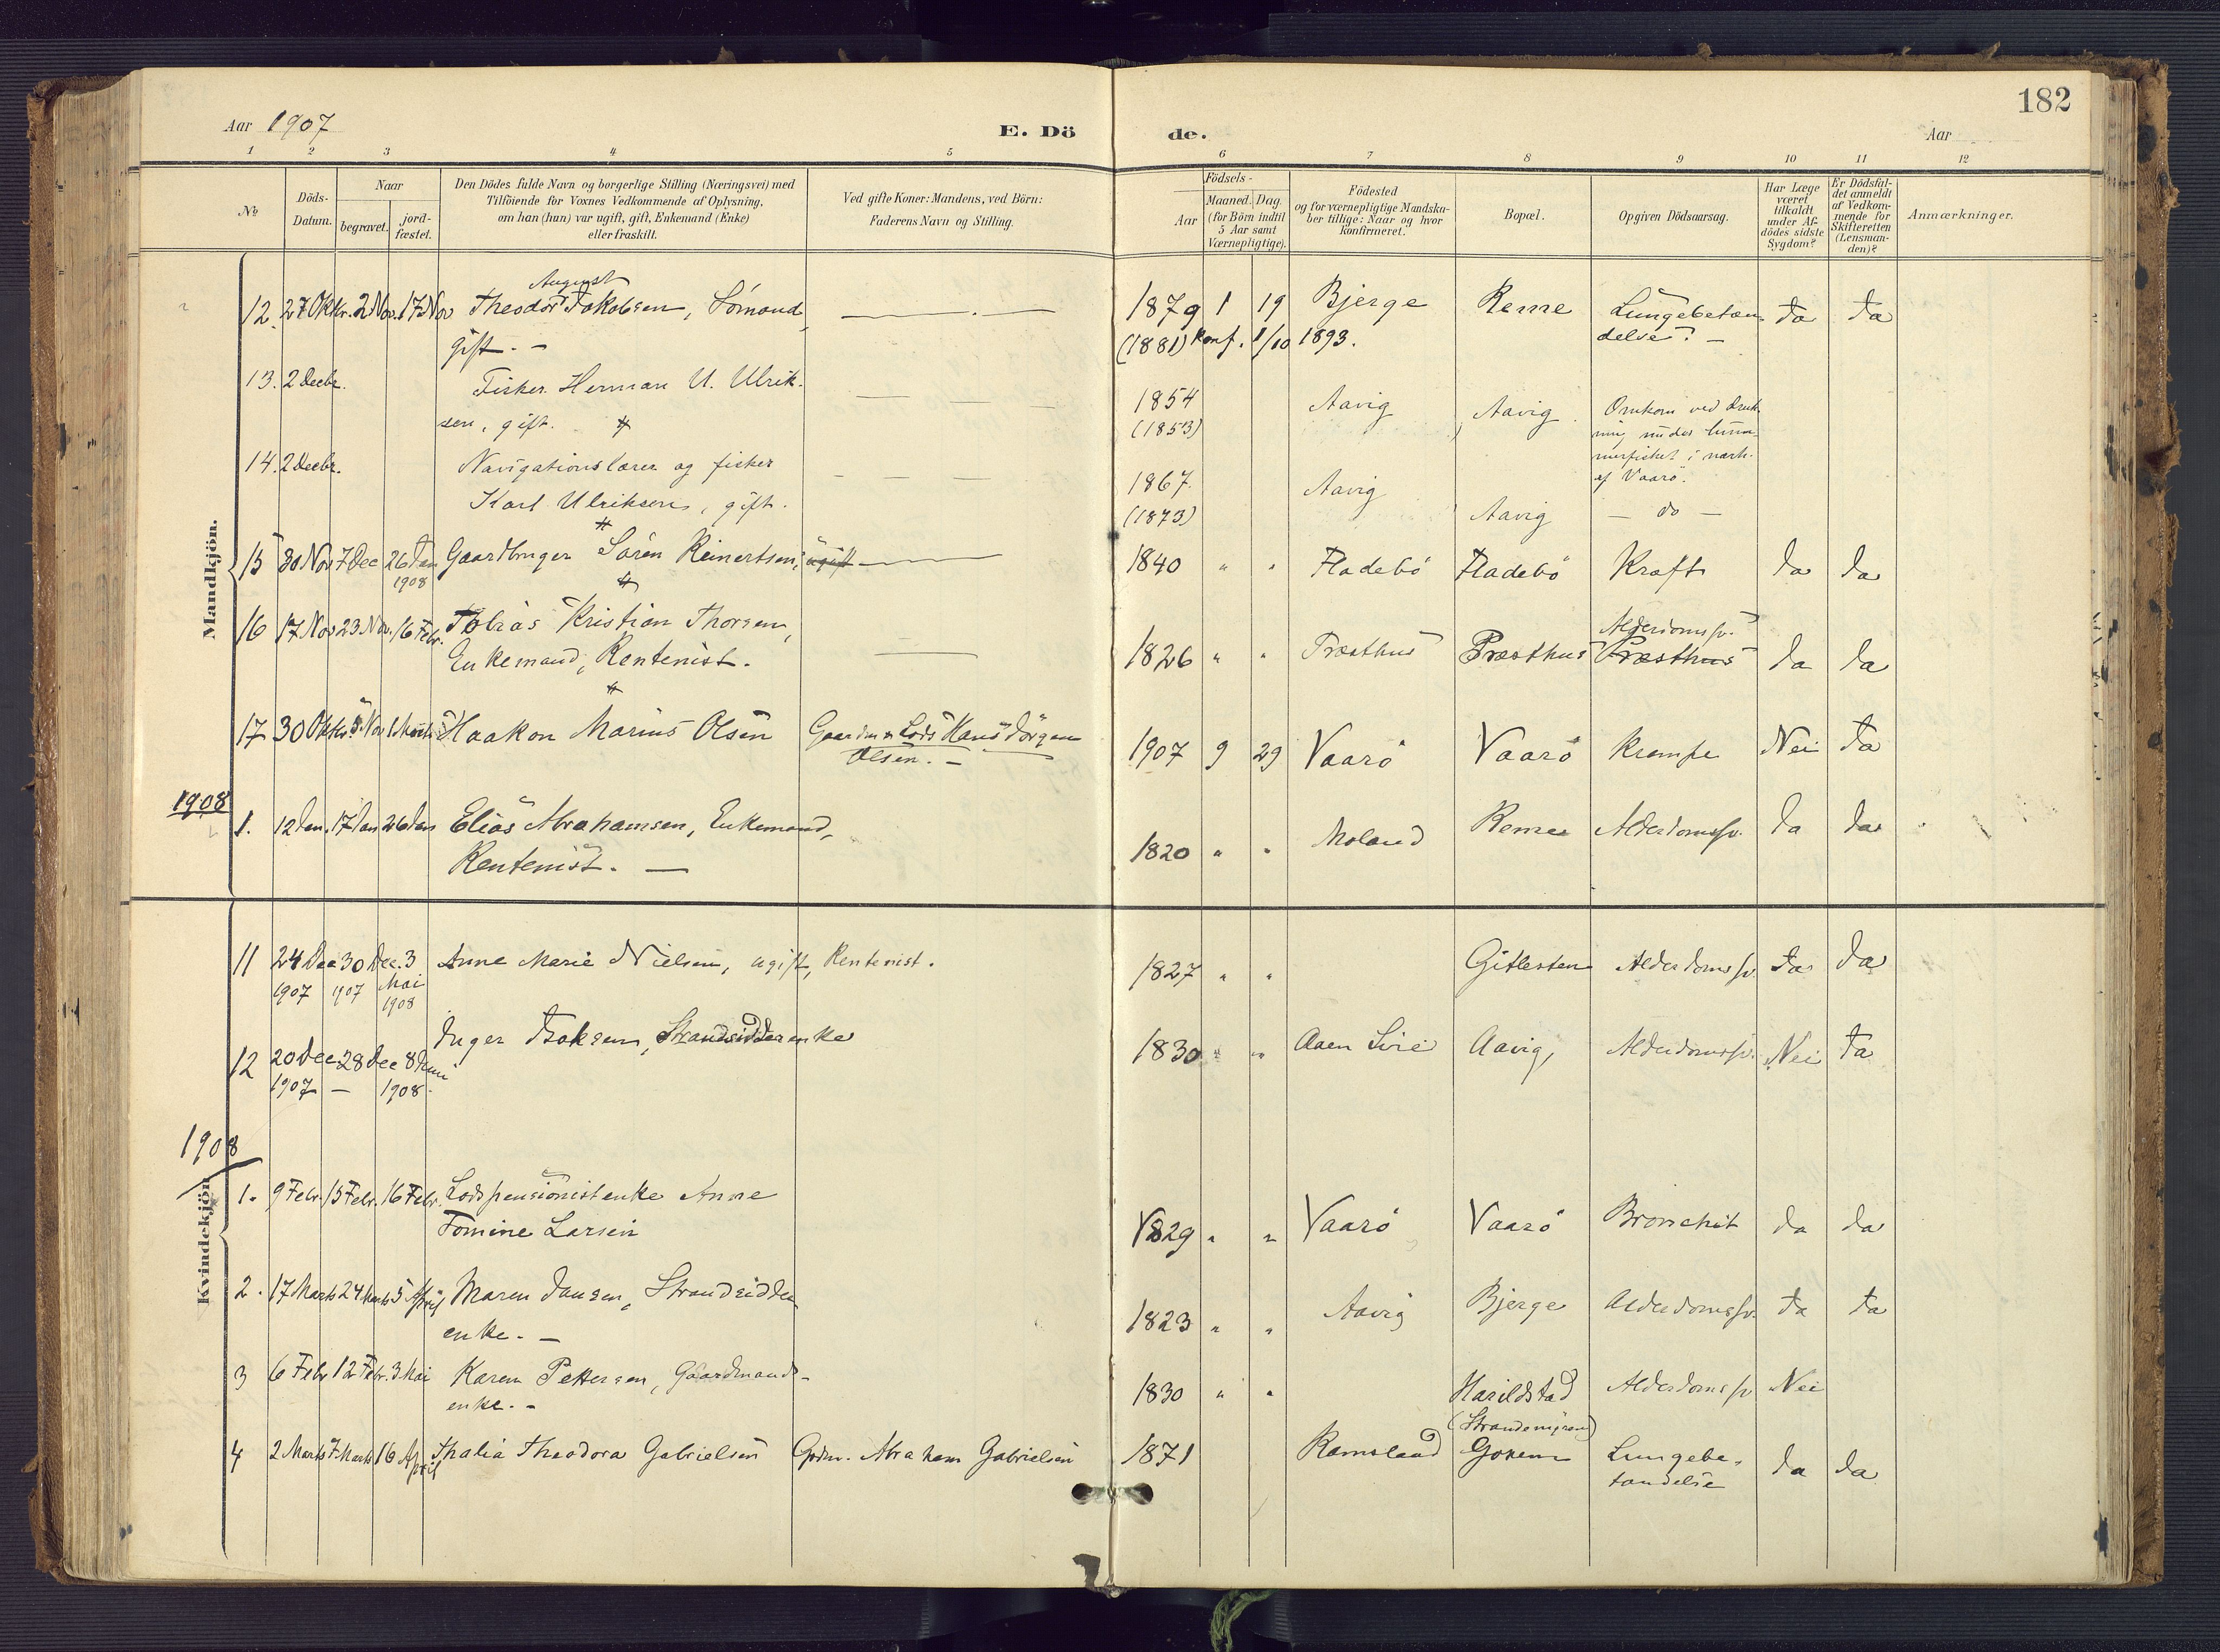 182
Aar 1907
E. Dö de.
Aar
1 2 3 4 5 6 7 8 9 10 11 12
No
Döds-Datum.
Naar
begravet.
jord-fæstet.
Den Dödes fulde Navn og borgerlige Stilling (Næringsvei) med
Tilföiende for Voxnes Vedkommende af Oplysning,
om han (hun) var ugift, gift, Enkemand (Enke)
eller fraskilt.
Ved gifte Koner: Mandens, ved Börn:
Faderens Navn og Stilling.
Födsels-
Aar
Maaned. Dag.
(for Börn indtil
5 Aar samt
Værnepligtige).
Födested
og for værnepligtige Mandska-
ber tillige: Naar og hvor
konfirmeret.
Bopæl.
Opgiven Dödsaarsag.
Har Læge
været
tilkaldt
under Af-
dödes sidste
Sygdom?
Er Dödsfal-
det anmeldt
af Vedkom-
mende for
Skifteretten
(Lensman-
den)?
Anmærkninger.
Mandkjön.
August
12. 27 Oktbr. 2 Nov. 17 Nov Theodor Jakobsen, Sömand, 1879 1 19 Bjerge Reme Lungebetæn- Ja Ja
gift. — (1881) Konf. 1/10 1893. delse. —
13. 2 Decbr. Fisker Herman U. Ulrik- 1854 Aavig Aavig Omkom ved druk-
sen, gift. (1853) ning under hum-
14. 2 Decbr. Navigationslærer og fisker merfisket i nærh.
1867 Aavig af Vaarö.
Karl Ulriksen, gift. (1873) Aavig — do —
15 30 Nov 7 Dec 26 Jan Gaardbruger Sören Reinertsen, ugift 1840 " " Fladebö Fladebö Kræft Ja Ja
1908
16 17 Nov 23 Nov. 16 Febr. Tobias Kristian Thorsen, Alderdomssv.
Enkemand, Rentenist. 1826 " " Præsthus Præsthus Præsthus Ja Ja
17 30 Oktbr. Nov 1 Marts Haakon Marius Olsen Gaardm. & Lods Hans Jörgen 1907 9 29 Vaarö Vaarö Krampe Nei Ja
Olsen. —
1908
1. 12 Jan. 17 Jan 26 Jan Elias Abrahamsen, Enkemand, 1820 " " Moland Reme Alderdomssv. Ja Ja
Rentenist. —
11 24 Dec 30 Dec. 3 Anne Marie Nielsen, ugift, Rentenist. 1827 " " Gitlesten Alderdomssv. Ja Ja
1907 1907 Mai
1908
Inger Isaksen, Strandsidderenke
12 20 Dec 28 Dec 8 Juni 1830 " " Aaen Lire Aavig, Alderdomssv. Nei Ja
1907 — 1908.
1908
Kvindekjön
1. 9 Febr. 15 Febr. 16 Febr. Lodspensionistenke Anne
Tomine Larsen 1829 " " Vaarö Vaarö Bronchit Ja Ja
2. 17 Marts 24 Marts 5 April Maren Jansen, Strandsidder
enke. — 1823 " " Aavig Bjerge Alderdomssv. Ja Ja
3 6 Febr 12 Febr. 3 Mai Karen Pettersen, Gaardmands-
enke. - 1830 " " Harildstad Alderdomssv Nei
(Strandemyren)
4 2 Marts 7 Marts 16 April Thalia Theodora Gabrielsen Grdm. Abraham Gabrielsen 1871 Ramsland Goven Lungebe- Ja Ja
tændelse